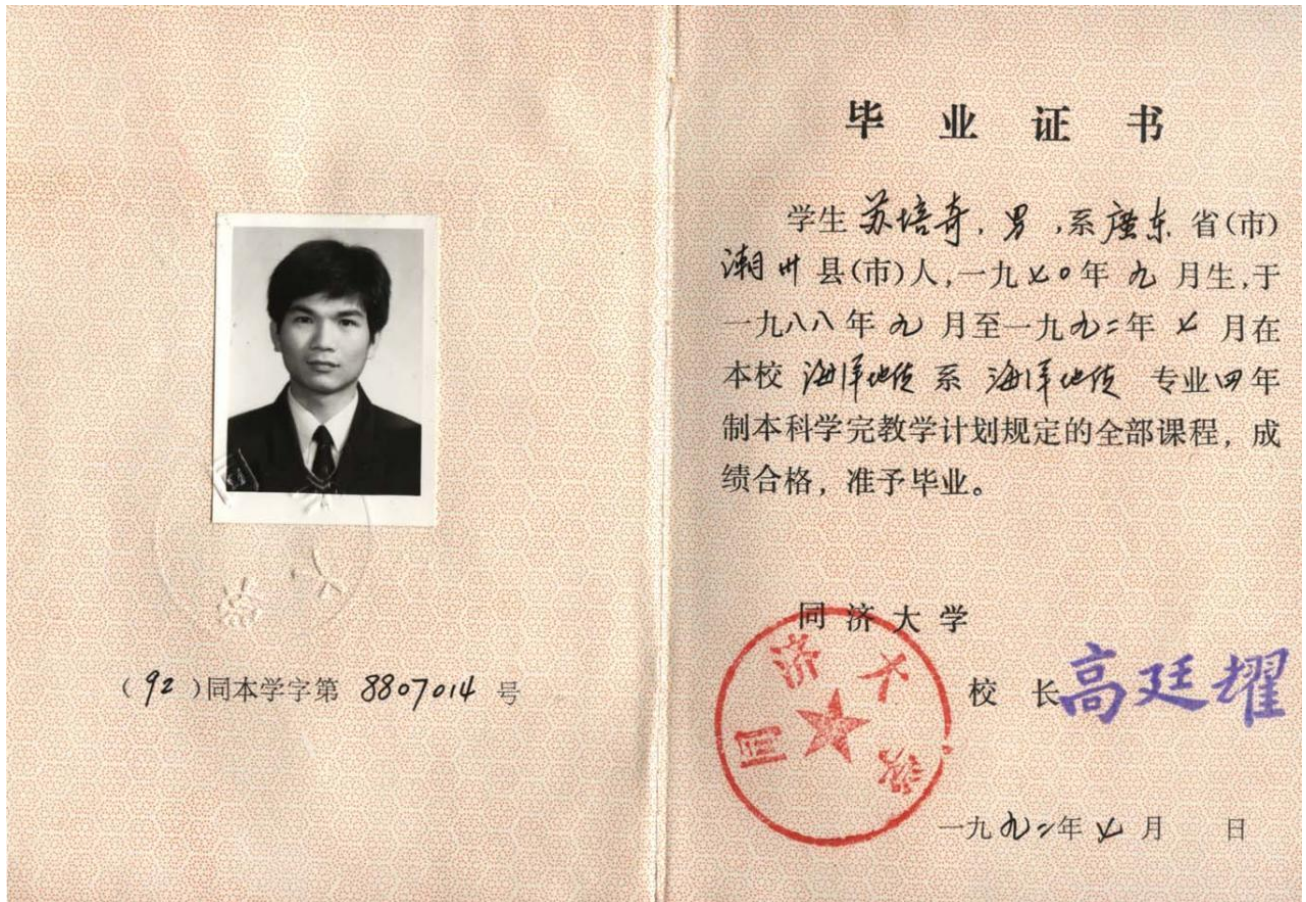 (92)同本学字第 8807014 号
毕业证书
学生 苏培奇,男,系廣东省(市)
潮州县(市)人,一九七〇年九月生,于
一九八八年九月至一九九二年七月在
本校 海洋地质系 海洋地质 专业四年
制本科学完教学计划规定的全部课程,成
绩合格,准予毕业。
同济大学
校长 高廷耀
同济大学
一九九二年七月 日